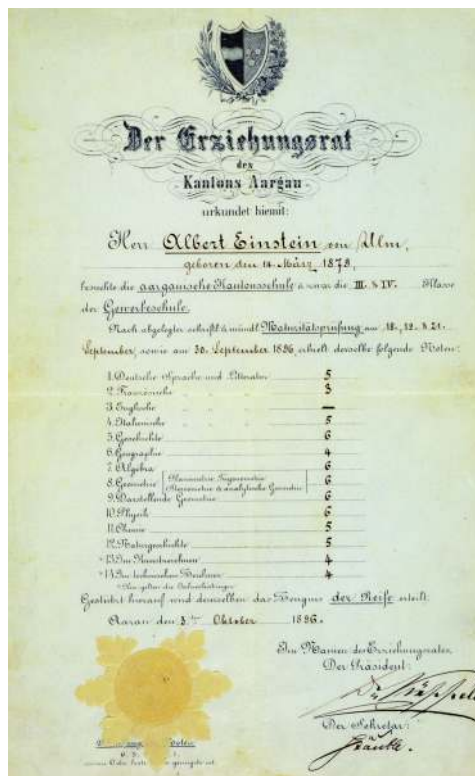 Der Erziehungsrat
des
Kantons Aargau
urkundet hiemit:
Herr Albert Einstein von Ulm,
geboren den 14. März 1879,
besuchte die aargauische Kantonsschule & zwar die III. & IV. Klasse
der Gewerbeschule.
Nach abgelegter schriftl. & mündl. Maturitätsprüfung am 18., 19. & 21.
September, sowie am 30. September 1896, erhielt derselbe folgende Noten:
1. Deutsche Sprache und Litteratur 5
2. Französische 3
3. Englische —
4. Italienische 5
5. Geschichte 6
6. Geographie 4
7. Algebra 6
8. Geometrie Planimetrie, Trigonometrie 6
Stereometrie & analytische Geometrie
9. Darstellende Geometrie 6
10. Physik 6
11. Chemie 5
12. Naturgeschichte 5
*13. Im Kunstzeichnen 4
*14. Im technischen Zeichnen 4
* Hier gelten die Jahresleistungen.
Gestützt hierauf wird demselben das Zeugnis der Reife erteilt.
Aarau den 3ten Oktober 1896.
Im Namen des Erziehungsrates,
Der Präsident:
Der Sekretär: